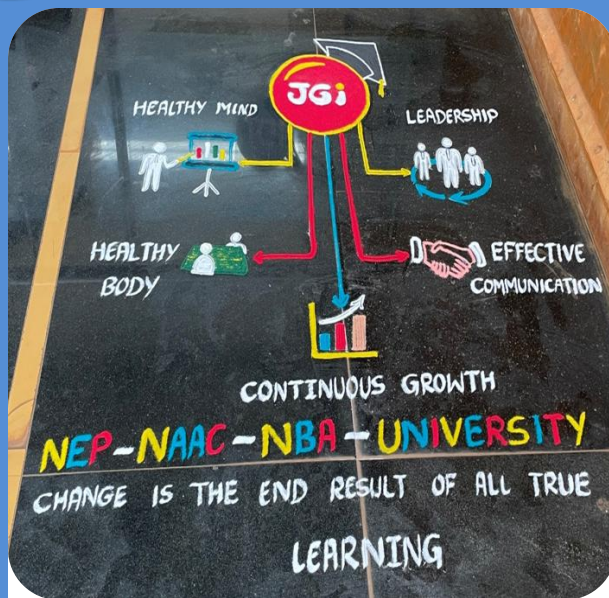 JGi
HEALTHY MIND
LEADERSHIP
HEALTHY
BODY
EFFECTIVE
COMMUNICATION
CONTINUOUS GROWTH
NEP-NAAC-NBA-UNIVERSITY
CHANGE IS THE END RESULT OF ALL TRUE
LEARNING